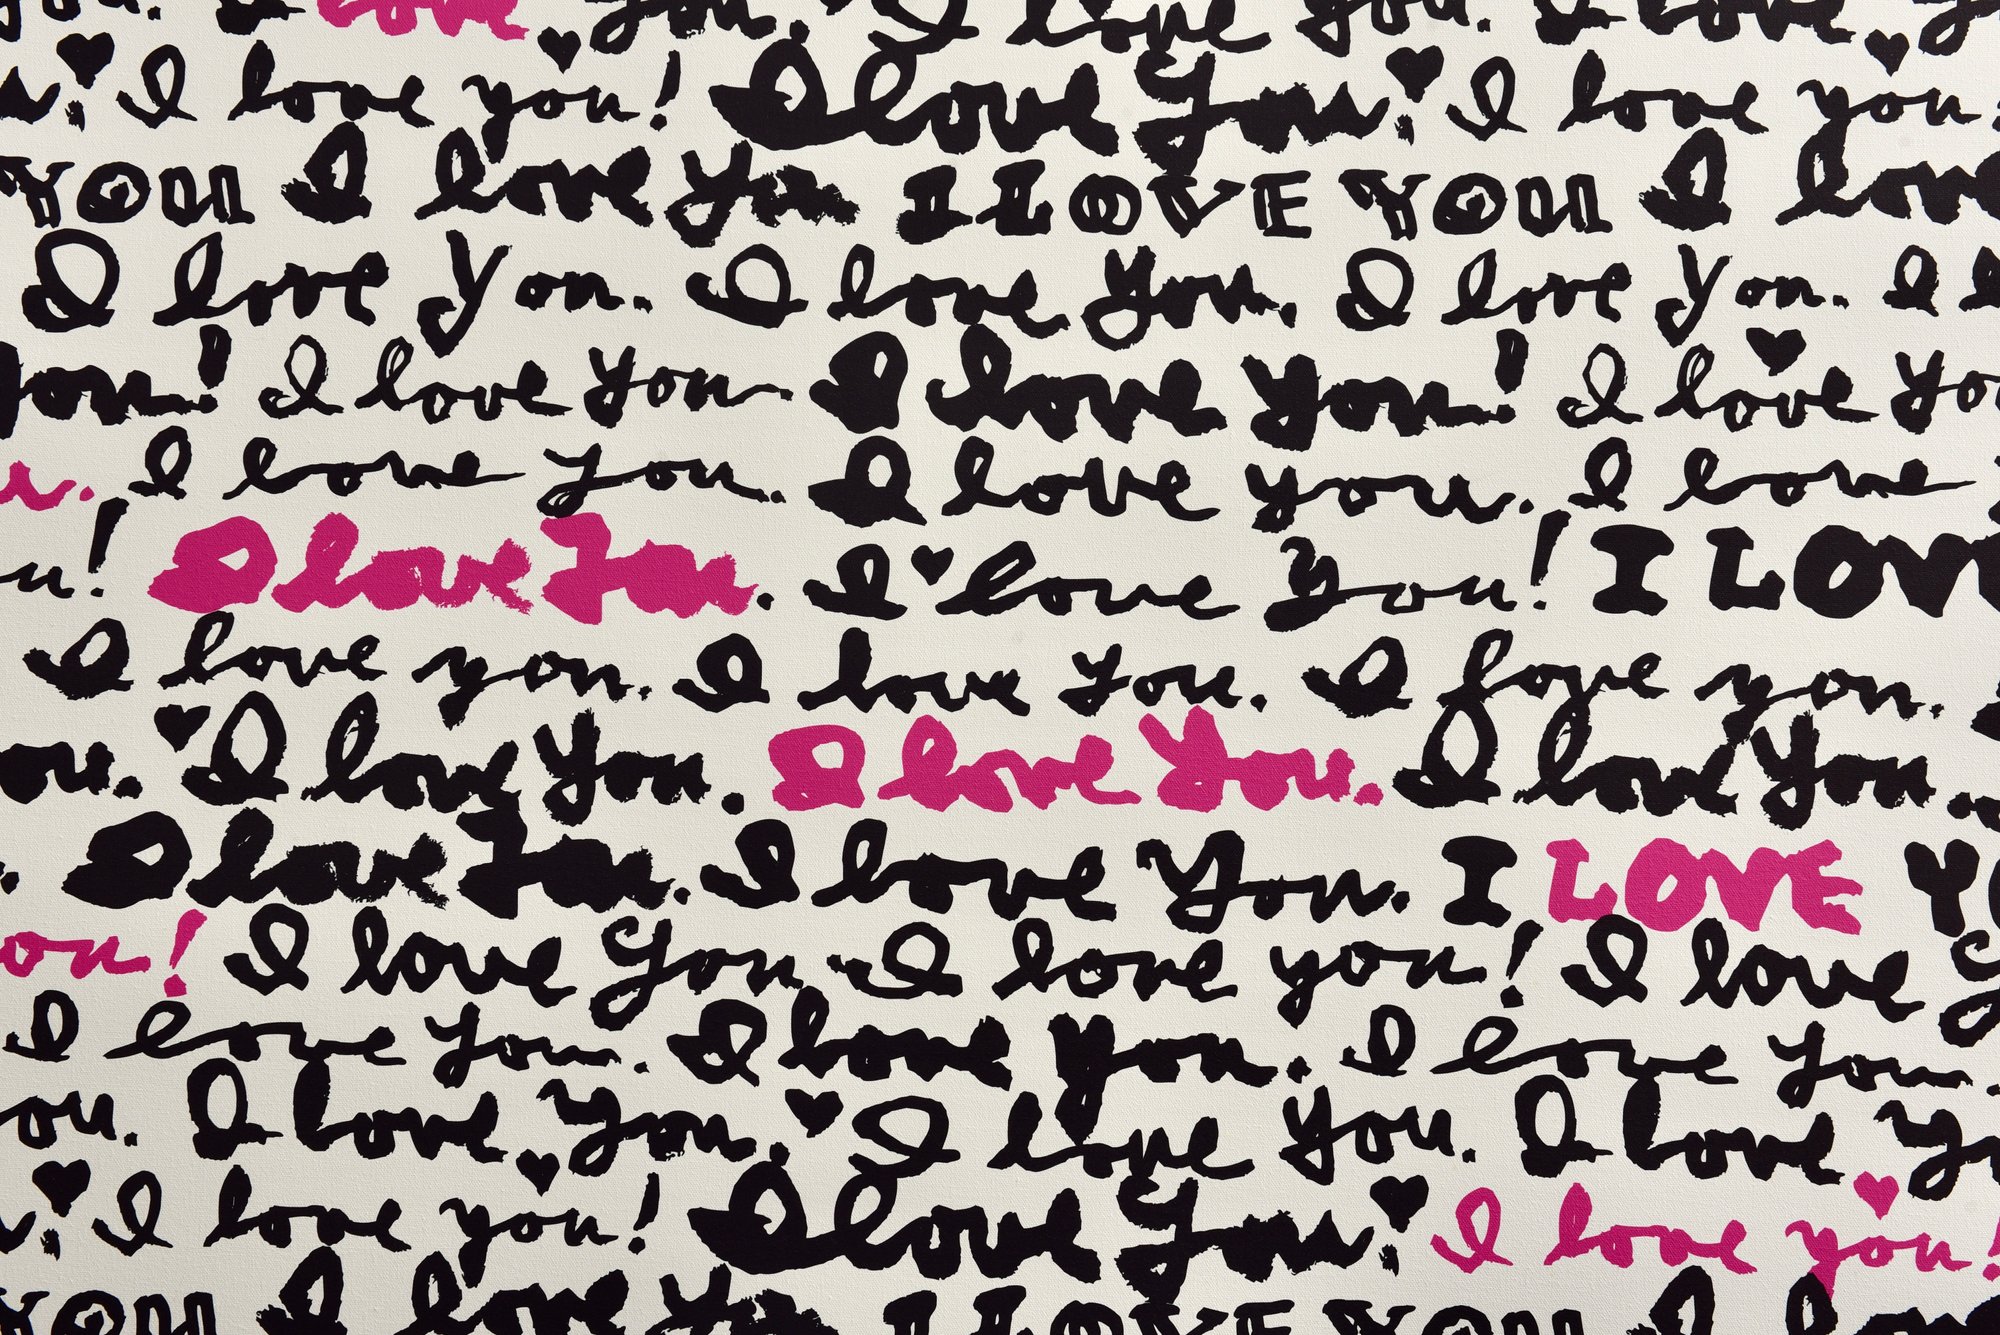 you. I love you. I love you. I love y
I love you! I love you. I love you!
YOU I love you I LOVE YOU I love
I love you. I love you. I love you. I l
you! I love you. I love you! I love yo
u. I love you. I love you. I love
u! I love you. I love You! I LOV
I love you. I love you. I love you.
ou. I love you. I love you. I love you.
I love you. I love you. I LOVE YO
ou! I love you. I love you! I love y
I love you. I love you. I love you.
ou. I love you. I love you. I love yo
I love you! I love you. I love you!
YOU I love you I LOVE YOU I love